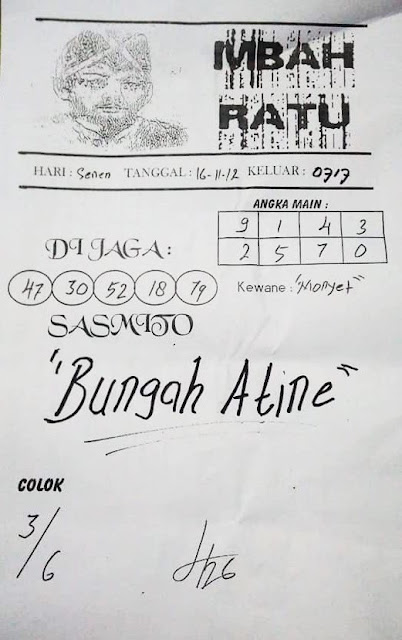 MBAH
RATU
HARI : Senen TANGGAL : 16-11-12 KELUAR : 0717
ANGKA MAIN :
9 1 4 3
2 5 7 0
DI JAGA :
47 30 52 18 79
Kewane : "Monyet"
SASMITO
"Bungah Atine"
COLOK
3/6